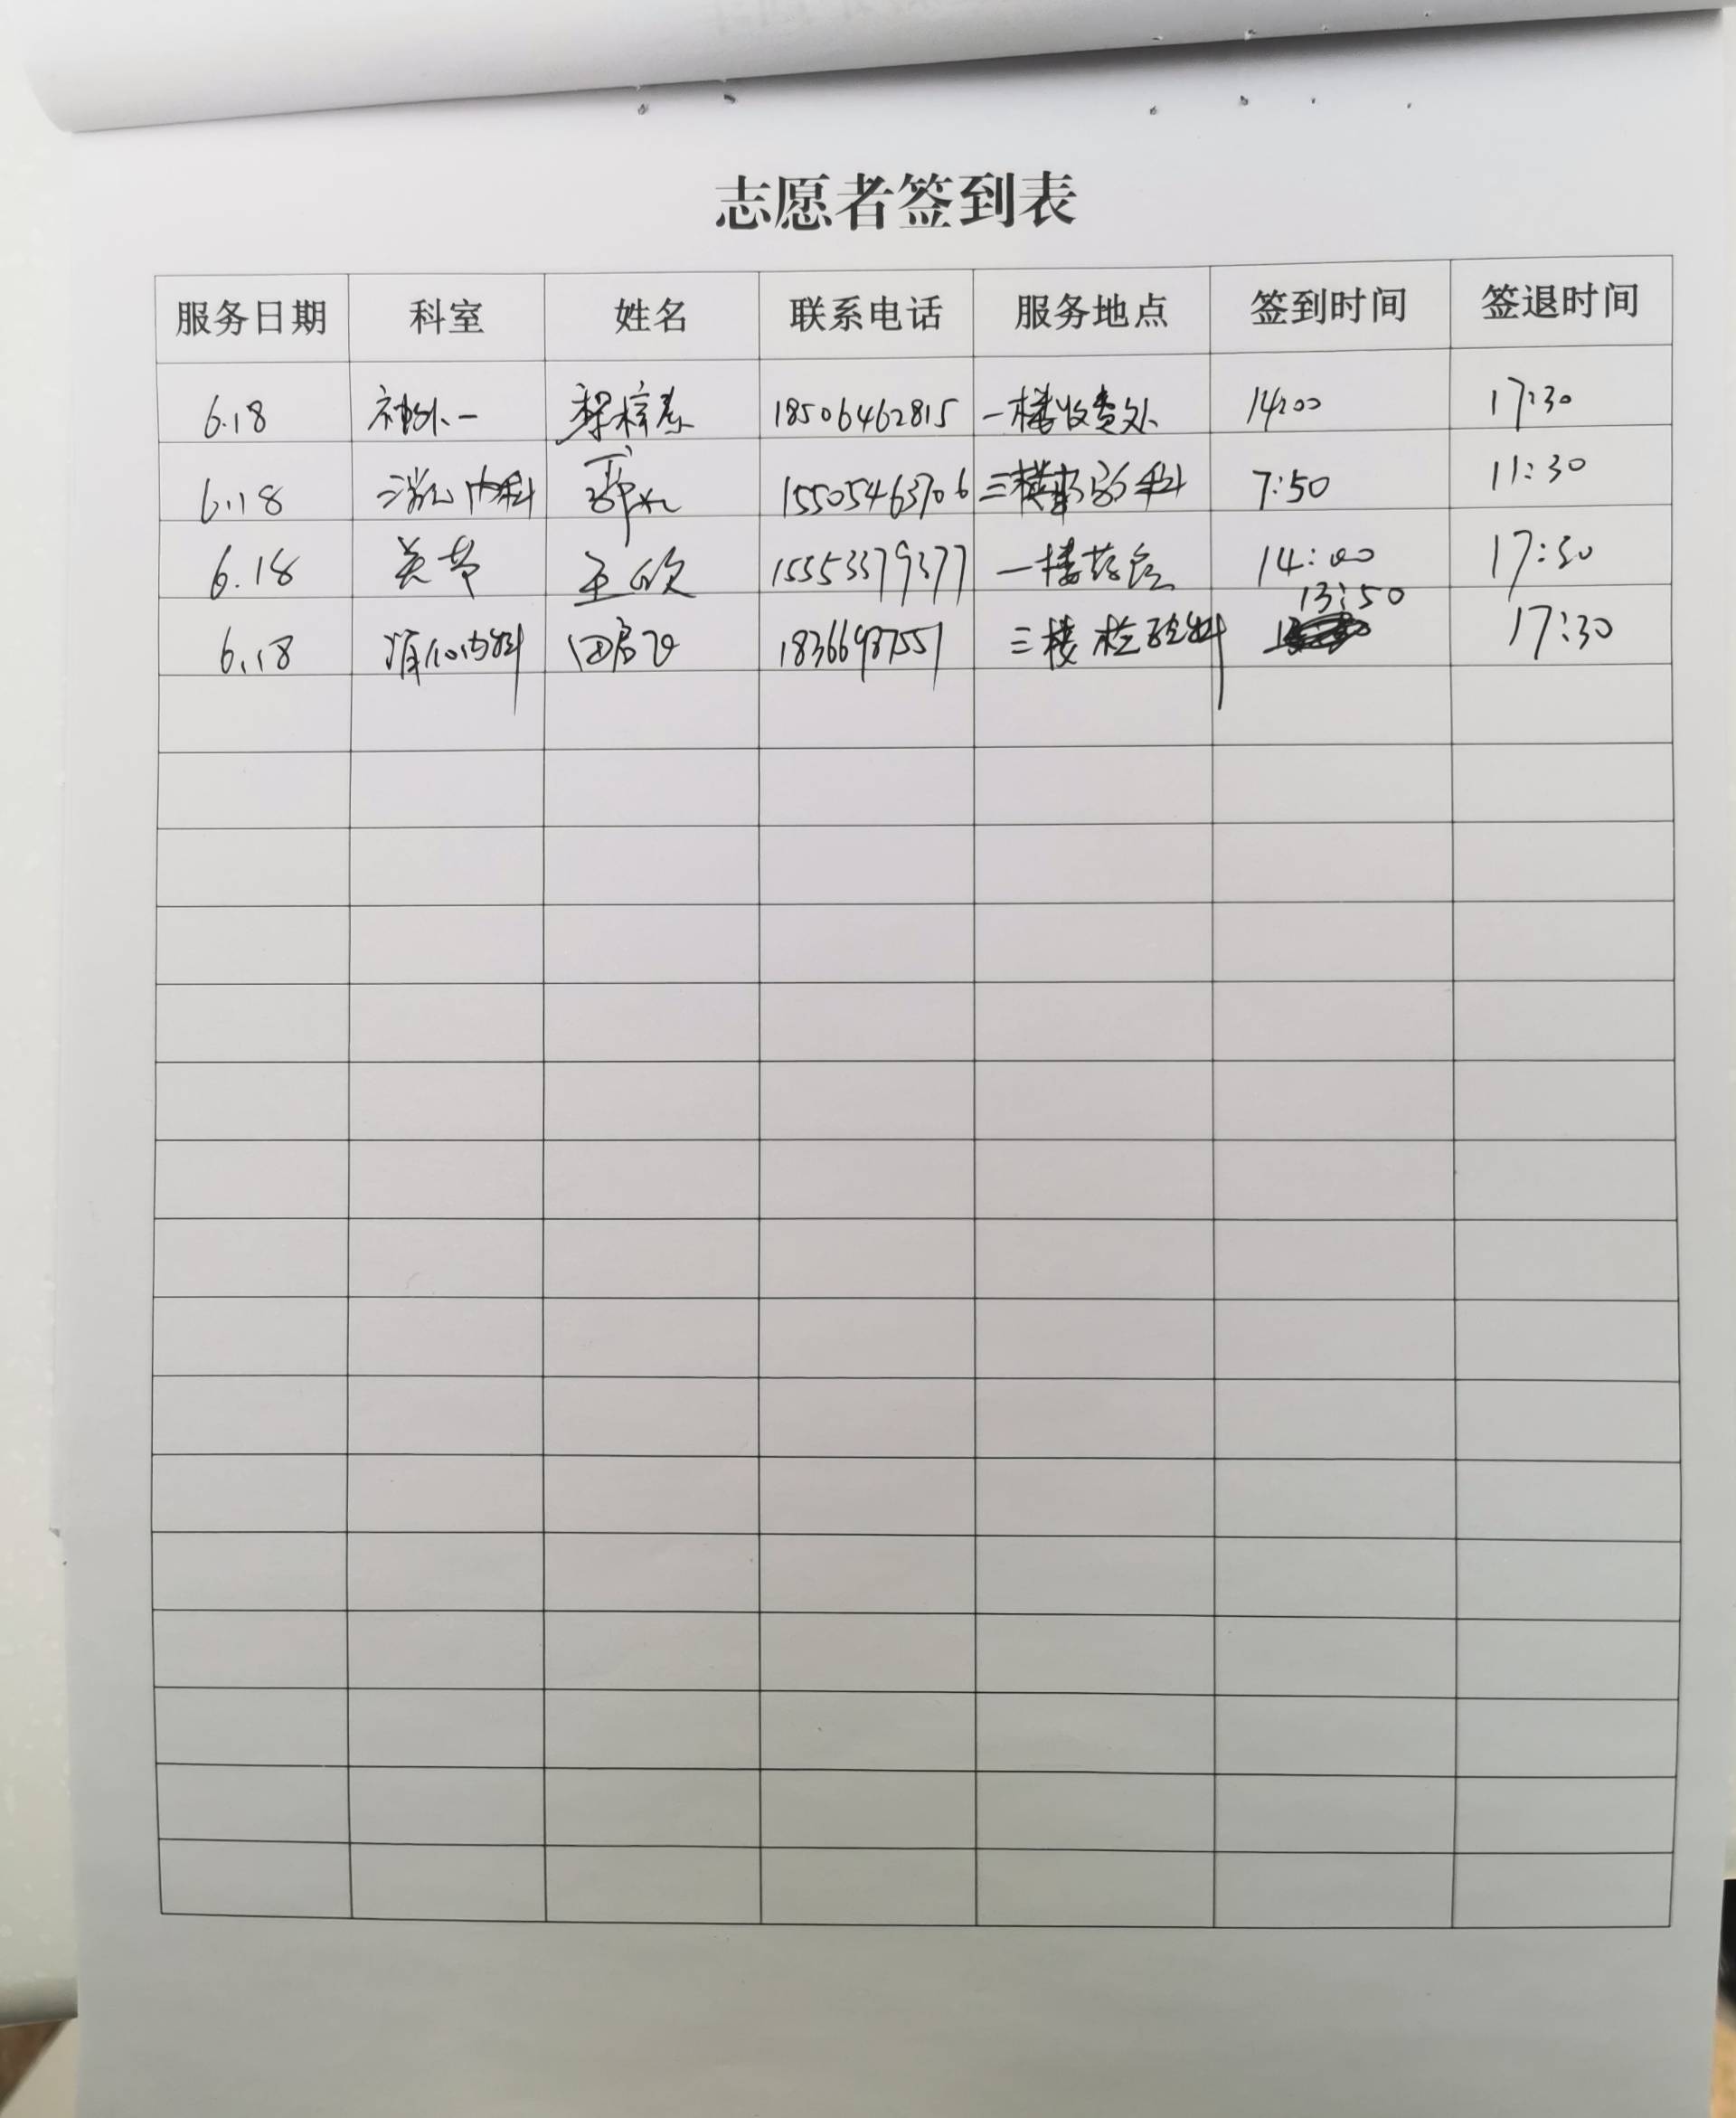 志愿者签到表
服务日期 科室 姓名 联系电话 服务地点 签到时间 签退时间
6.18 神外一 18506462815 一楼收费处 14:00 17:30
6.18 消化内科 15505463706 三楼 科 7:50 11:30
6.18 关节 王欣 15553379377 一楼 14:00 17:30
6.18 内科 18366987551 三楼检验科 13:50 17:30